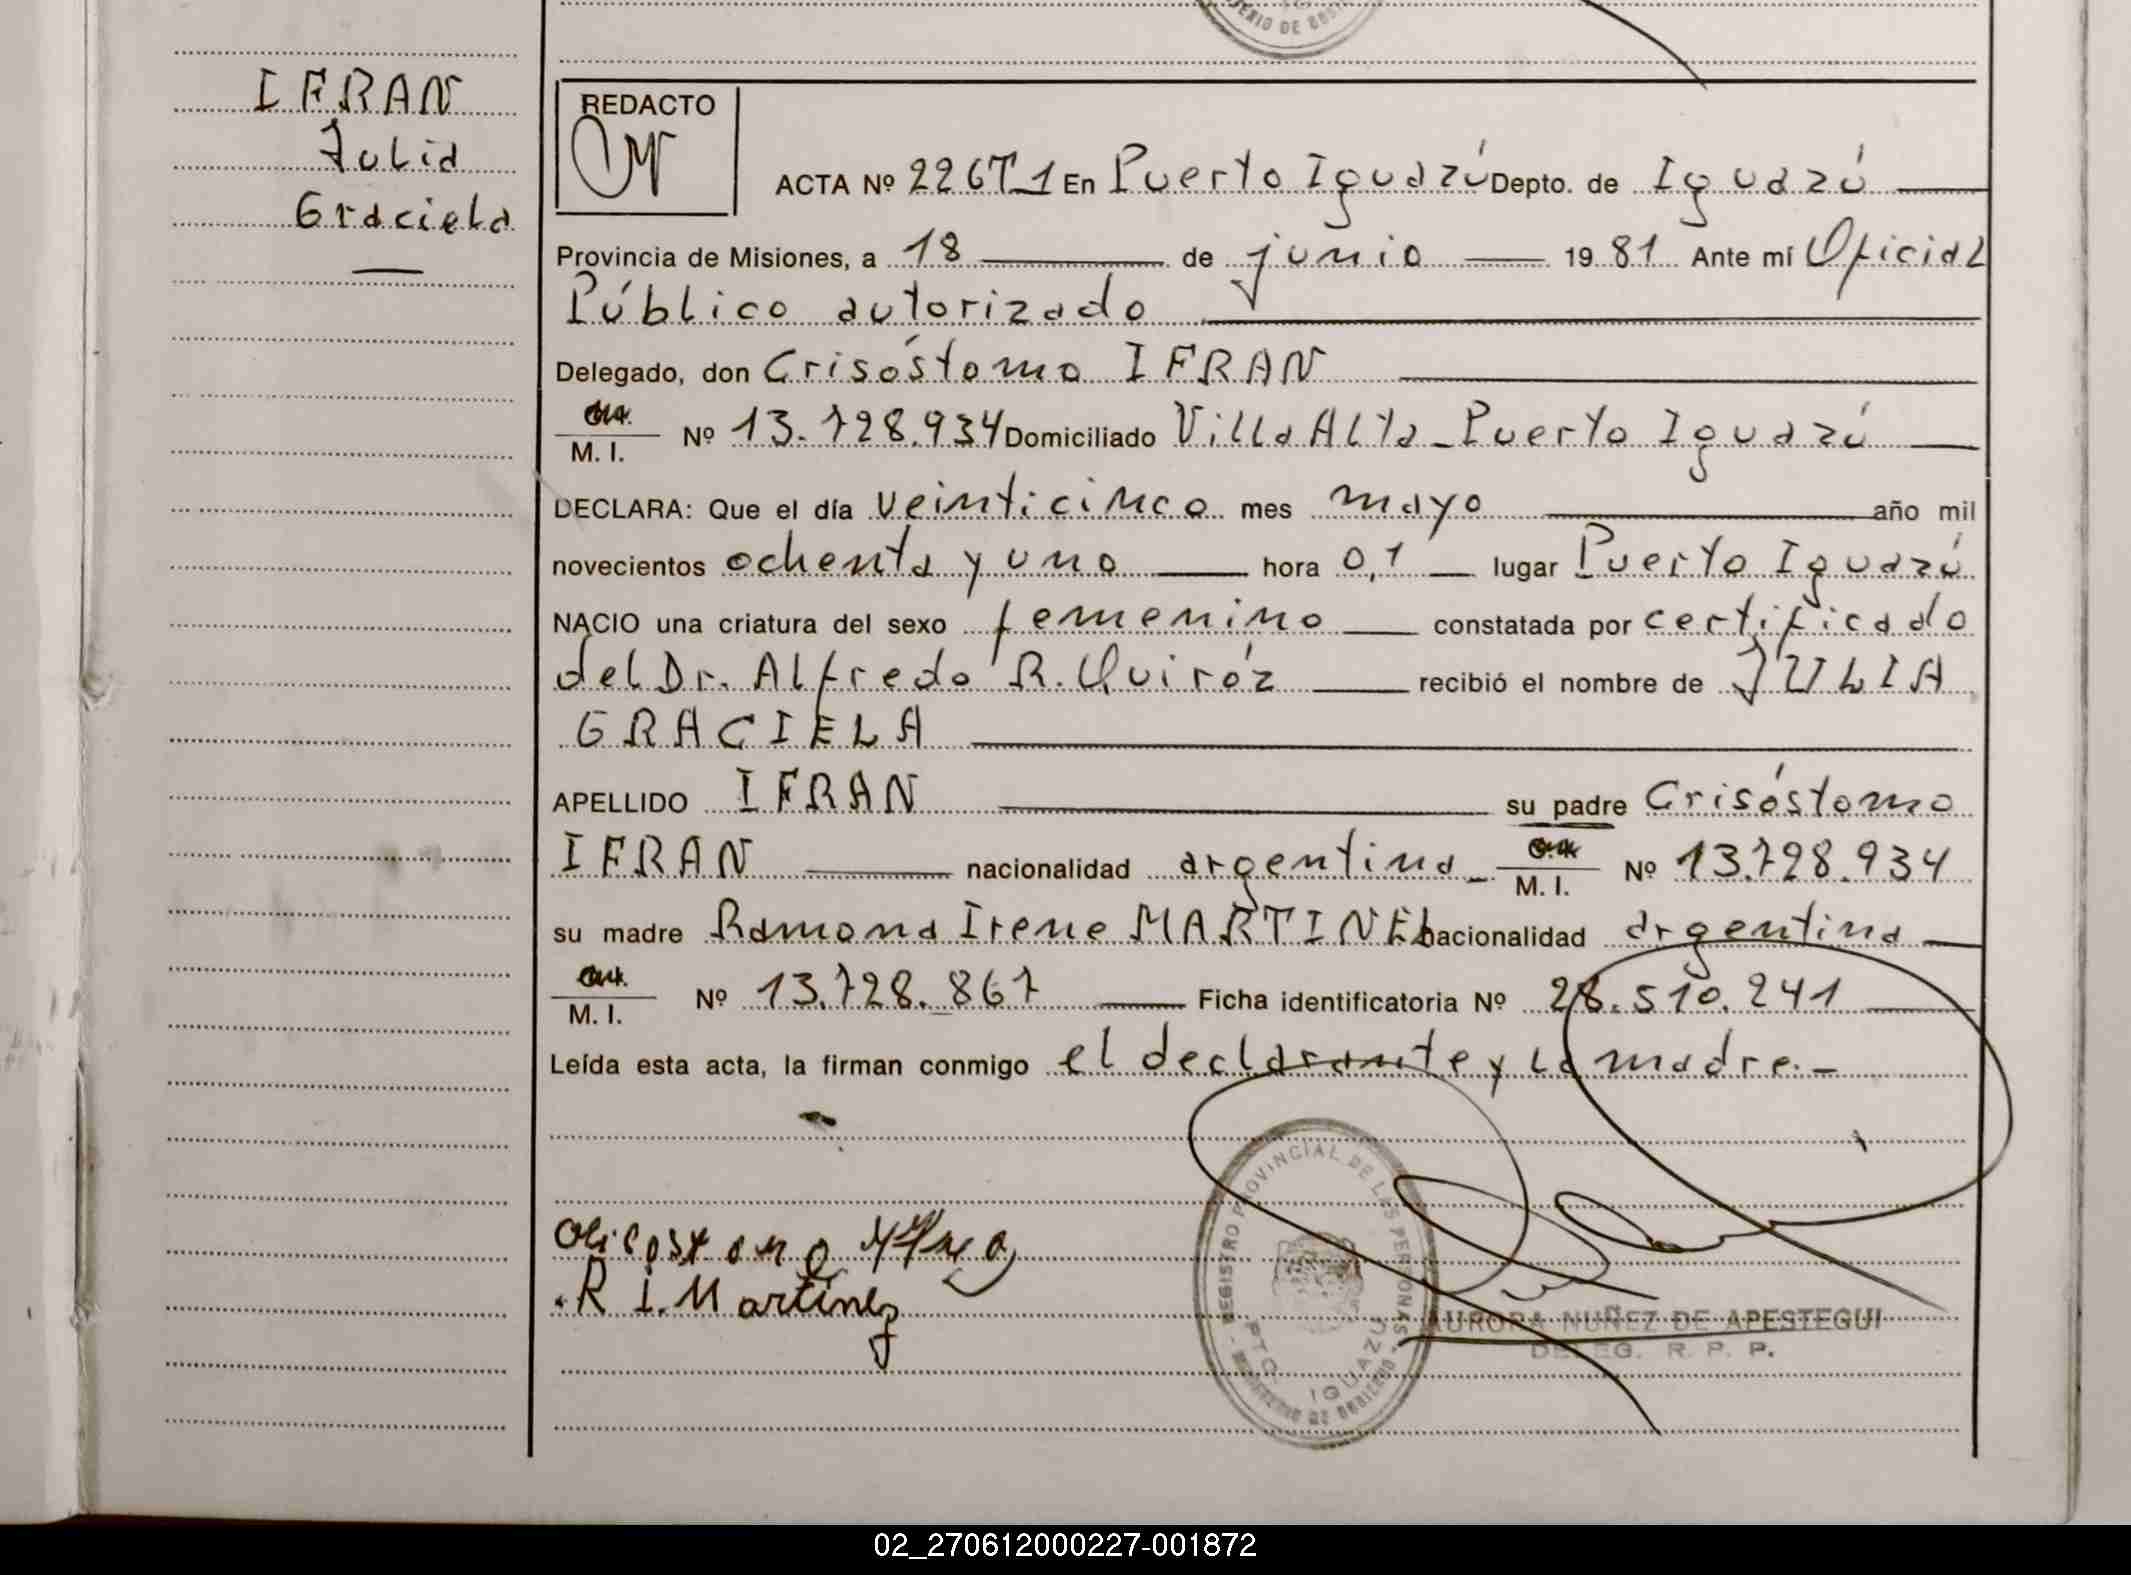 IFRAN
Julia
Graciela
REDACTO
ACTA Nº 226T1 En Puerto Iguazú Depto. de Iguazú
Provincia de Misiones, a 18 de junio 1981 Ante mí Oficial
Público autorizado
Delegado, don Crisóstomo IFRAN
M. I. Nº 13.728.934 Domiciliado Villa Alta - Puerto Iguazú
DECLARA: Que el día veinticinco mes mayo año mil
novecientos ochenta y uno hora 0,1 lugar Puerto Iguazú
NACIO una criatura del sexo femenino constatada por certificado
del Dr. Alfredo R. Quiróz recibió el nombre de JULIA
GRACIELA
APELLIDO IFRAN su padre Crisóstomo
IFRAN nacionalidad argentina - M. I. Nº 13.728.934
su madre Ramona Irene MARTINEZ nacionalidad argentina
M. I. Nº 13.728.867 Ficha identificatoria Nº 28.510.241
Leída esta acta, la firman conmigo el declarante y la madre.-
R i. Martinez
REGISTRO PROVINCIAL DE LAS PERSONAS
PTO. IGUAZU
AURORA NUÑEZ DE APESTEGUI
DELEG. R. P. P.
02_270612000227-001872